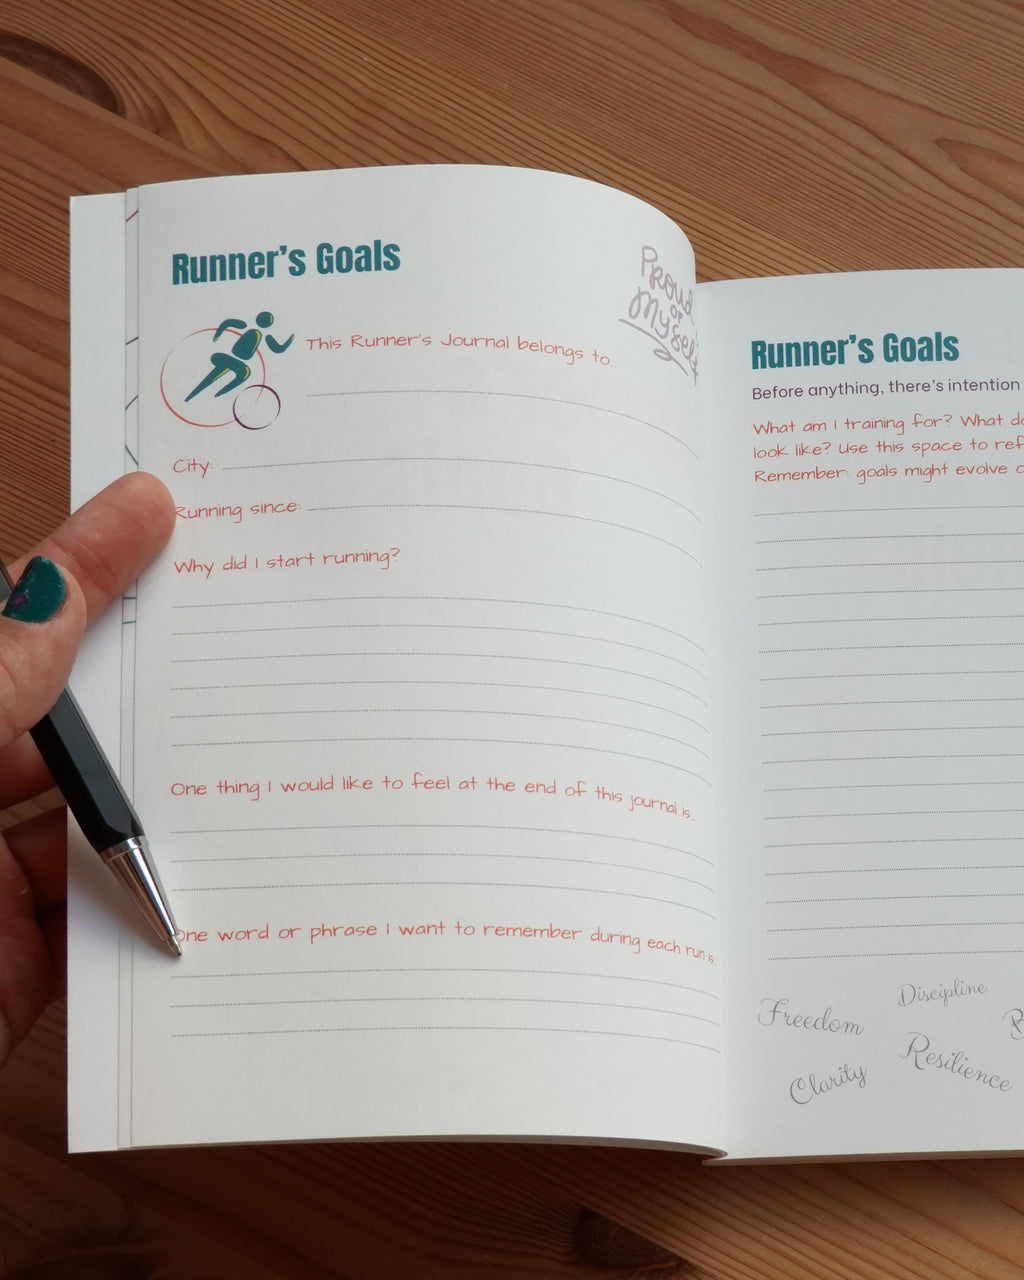 Runner's Goals
Proud
of
Myself
This Runner's Journal belongs to...
City:
Running since:
Why did I start running?
One thing I would like to feel at the end of this journal is...
One word or phrase I want to remember during each run is...
Runner's Goals
Before anything, there's intention
What am I training for? What do
look like? Use this space to ref
Remember: goals might evolve
Discipline
Freedom
Resilience
Clarity